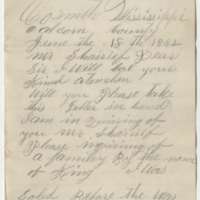 Corinth Mississippi
Alcorn County
June the 18th 1882
Mr Sharief Dear
Sir I will let your
kind attention
Will you Please take
this letter in hand
I am in quiring of
you Mr Sharief
Please inquiring of
a family By the name
of King I was
Before the War